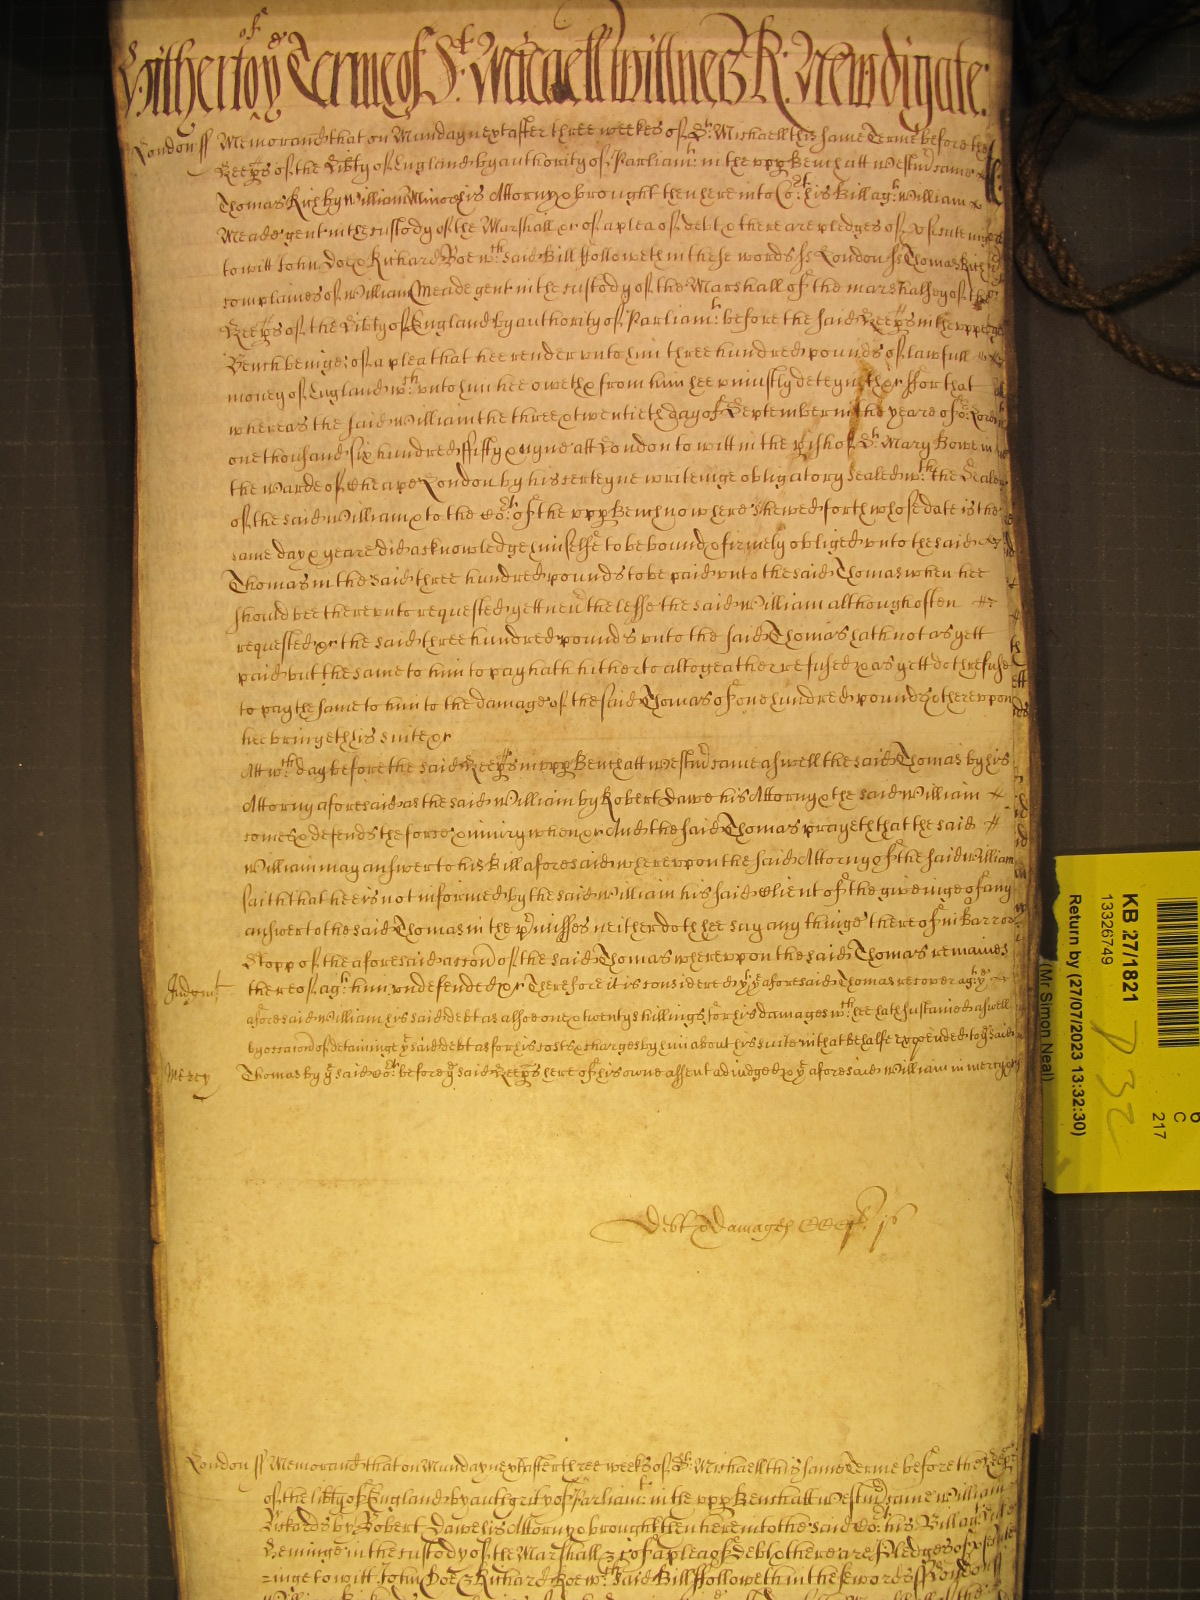 of ye
Witherto yet Terme of St. Micaell Witnes R: Newdigate:
London ss Memorand that on Munday next after three weekes of St. Michaell this same Terme before the
Keeps of the Libty of England by authority of Parliamt. in the upp Bench att Westm came
Thomas Rich by William his Attorny & brought then here into Cot. his Bill agt. William
Meade gent in the custody of the Marshall &c of a plea of debt & there are pledges of
to witt John Doe & Richard Roe wth said Bill followeth in these words ss London ss Thomas Rich
complaines of William Meade gent in the custody of the Marshall of the marshalsey of the
Keeps of the Libty of England by authority of Parliamt. before the said Keeps in the upper
Bench beinge of a plea that hee render unto him three hundred pounds of lawfull
money of England wch. unto him hee oweth & from him hee uniustly deteyneth &c for that
whereas the said William the three & twentieth day of September in the yeare of or. Lord
one thousand six hundred fifty & nyne att London to witt in the pish of St. Mary Bowe in
the warde of Cheape London by his certeyne writeinge obligatory sealed wth. the Seale
of the said William & to the Cot. of the upp Bench now here shewed forth whose date is the
same day & yeare did acknowledge himselfe to be bound & firmely obliged unto the said
Thomas in the said three hundred pounds to be paid unto the said Thomas when hee
should bee thereunto requested yett nevr thelesse the said William although often
requested &c the said three hundred pounds unto the said Thomas hath not as yett
paid but the same to him to pay hath hitherto altogeather refused & as yett doth refuse
to pay the same to him to the damage of the said Thomas of one hundred pounds & thereupon
hee bringeth his suite &c
Att wch day before the said Keeps in upp Bench att Westm came aswell the said Thomas by his
Attorny aforesaid as the said William by Robert Dawe his Attorny & the said William
comes & defends the force & iniury when &c And the said Thomas prayeth that the said
William may answer to his Bill aforesaid whereupon the said Attorny of the said William
saith that hee is not informed by the said William his said Client of the giveinge of any
answer to the said Thomas in the pmisses neither doth hee say any thinge thereof in Barr or
Stopp of the aforesaid accon of the said Thomas whereupon the said Thomas remaines
Judgmt
thereof agt. him undefended &c Therefore it is considered yt ye aforesaid Thomas recover agt. ye
aforesaid William his said debt as alsoe one & twenty shillings for his damages wch. hee hath sustained aswell
by occacon of deteininge ye said debt as for his costs & charges by him about his suite in that behalfe expended to ye said
Mercy
Thomas by ye said Cot. before ye said Keeps here of his owne assent adiudged & ye aforesaid William in mercy &c
Debt & damages CCC
London ss Memorand that on Munday next after three weekes of St. Michaell this same Terme before the Keeps
of the libty of England by authority of Parliamt. in the upp Bench att Westm came William
Rickards by Robert Dawe his Attorny & brought then here into the said Cot. his Bill agt.
Heminge in the custody of the Marshall &c of a plea of Debt & there are Pledges of
=inge to witt John Doe & Richard Roe wch. said Bill followeth in these words ss London ss
KB 27/1821
13326749
Return by (27/07/2023 13:32:30)
(Mr Simon Neal)
6
C
217
P 32